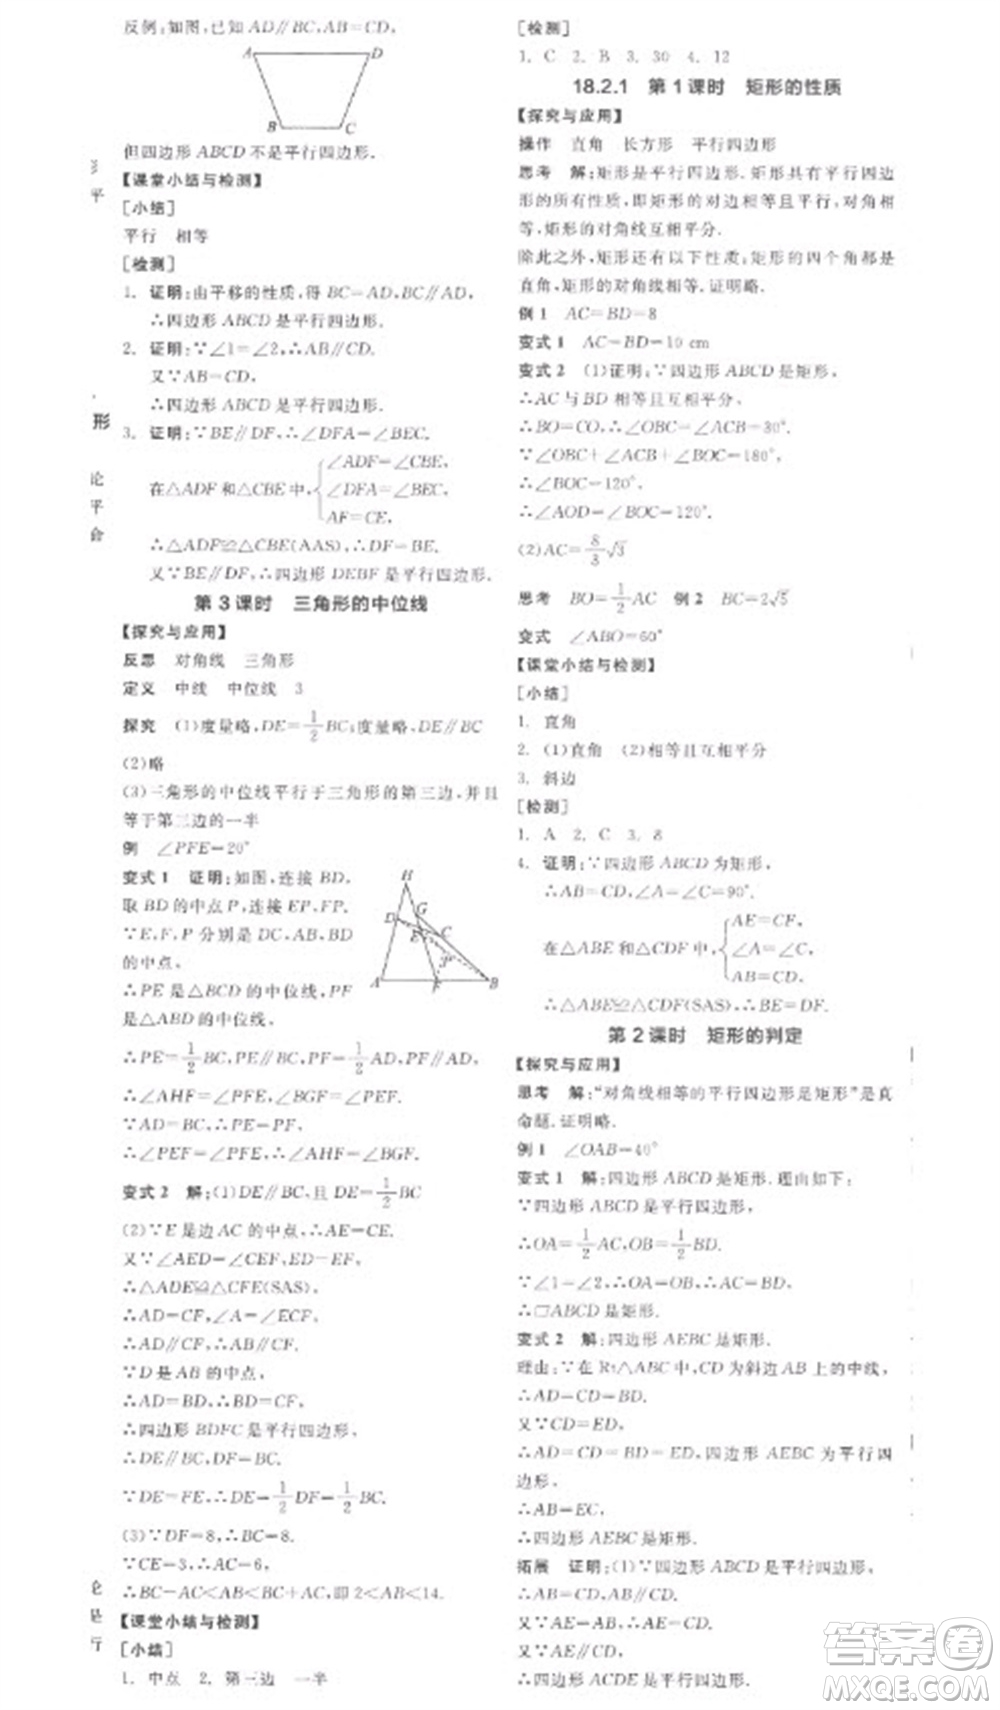 反例:如图,已知 AD∥BC,AB=CD,
A
D
B
C
但四边形 ABCD 不是平行四边形.
【课堂小结与检测】
[小结]
平行 相等
[检测]
1. 证明:由平移的性质,得 BC=AD,BC∥AD,
∴四边形 ABCD 是平行四边形.
2. 证明:∵∠1=∠2,∴AB∥CD.
又∵AB=CD,
∴四边形 ABCD 是平行四边形.
3. 证明:∵BE∥DF,∴∠DFA=∠BEC.
在△ADF 和△CBE 中,
∠ADF=∠CBE,
∠DFA=∠BEC,
AF=CE,
∴△ADF≌△CBE(AAS),∴DF=BE.
又∵BE∥DF,∴四边形 DEBF 是平行四边形.
第 3 课时 三角形的中位线
【探究与应用】
反思 对角线 三角形
定义 中线 中位线 3
探究 (1)度量略,DE=1/2BC;度量略,DE∥BC
(2)略
(3)三角形的中位线平行于三角形的第三边,并且
等于第三边的一半
例 ∠PFE=20°
变式 1 证明:如图,连接 BD,
取 BD 的中点 P,连接 EP,FP.
∵E,F,P 分别是 DC,AB,BD
的中点,
∴PE 是△BCD 的中位线,PF
是△ABD 的中位线,
H
G
D
C
E
P
A
F
B
∴PE=1/2BC,PE∥BC,PF=1/2AD,PF∥AD,
∴∠AHF=∠PFE,∠BGF=∠PEF.
∵AD=BC,∴PE=PF,
∴∠PEF=∠PFE,∴∠AHF=∠BGF.
变式 2 解:(1)DE∥BC,且 DE=1/2BC
(2)∵E 是边 AC 的中点,∴AE=CE.
又∵∠AED=∠CEF,ED=EF,
∴△ADE≌△CFE(SAS),
∴AD=CF,∠A=∠ECF,
∴AD∥CF,∴AB∥CF.
∵D 是 AB 的中点,
∴AD=BD,∴BD=CF,
∴四边形 BDFC 是平行四边形,
∴DF∥BC,DF=BC.
∵DE=FE,∴DE=1/2DF=1/2BC.
(3)∵DF=8,∴BC=8.
∵CE=3,∴AC=6,
∴BC-AC<AB<BC+AC,即 2<AB<14.
【课堂小结与检测】
[小结]
1. 中点 2. 第三边 一半
[检测]
1. C 2. B 3. 30 4. 12
18.2.1 第 1 课时 矩形的性质
【探究与应用】
操作 直角 长方形 平行四边形
思考 解:矩形是平行四边形.矩形具有平行四边
形的所有性质,即矩形的对边相等且平行,对角相
等,矩形的对角线互相平分.
除此之外,矩形还有以下性质:矩形的四个角都是
直角,矩形的对角线相等.证明略.
例 1 AC=BD=8
变式 1 AC=BD=10 cm
变式 2 (1)证明:∵四边形 ABCD 是矩形,
∴AC 与 BD 相等且互相平分,
∴BO=CO,∴∠OBC=∠ACB=30°.
∵∠OBC+∠ACB+∠BOC=180°,
∴∠BOC=120°,
∴∠AOD=∠BOC=120°.
(2)AC=8/3√3
思考 BO=1/2AC 例 2 BC=2√5
变式 ∠ABO=60°
【课堂小结与检测】
[小结]
1. 直角
2. (1)直角 (2)相等且互相平分
3. 斜边
[检测]
1. A 2. C 3. 8
4. 证明:∵四边形 ABCD 为矩形,
∴AB=CD,∠A=∠C=90°.
在△ABE 和△CDF 中,
AE=CF,
∠A=∠C,
AB=CD,
∴△ABE≌△CDF(SAS),∴BE=DF.
第 2 课时 矩形的判定
【探究与应用】
思考 解:“对角线相等的平行四边形是矩形”是真
命题.证明略.
例 1 ∠OAB=40°
变式 1 解:四边形 ABCD 是矩形.理由如下:
∵四边形 ABCD 是平行四边形,
∴OA=1/2AC,OB=1/2BD.
∵∠1=∠2,∴OA=OB,∴AC=BD,
∴□ABCD 是矩形.
变式 2 解:四边形 AEBC 是矩形.
理由:∵在 Rt△ABC 中,CD 为斜边 AB 上的中线,
∴AD=CD=BD.
又∵CD=ED,
∴AD=CD=BD=ED,∴四边形 AEBC 为平行四
边形,
∴AB=EC,
∴四边形 AEBC 是矩形.
拓展 证明:(1)∵四边形 ABCD 是平行四边形,
∴AB∥CD,AB=CD.
又∵AE=AB,∴AE=CD.
又∵AE∥CD,
∴四边形 ACDE 是平行四边形.
形
论
平
行
答案卷
MXQE.COM